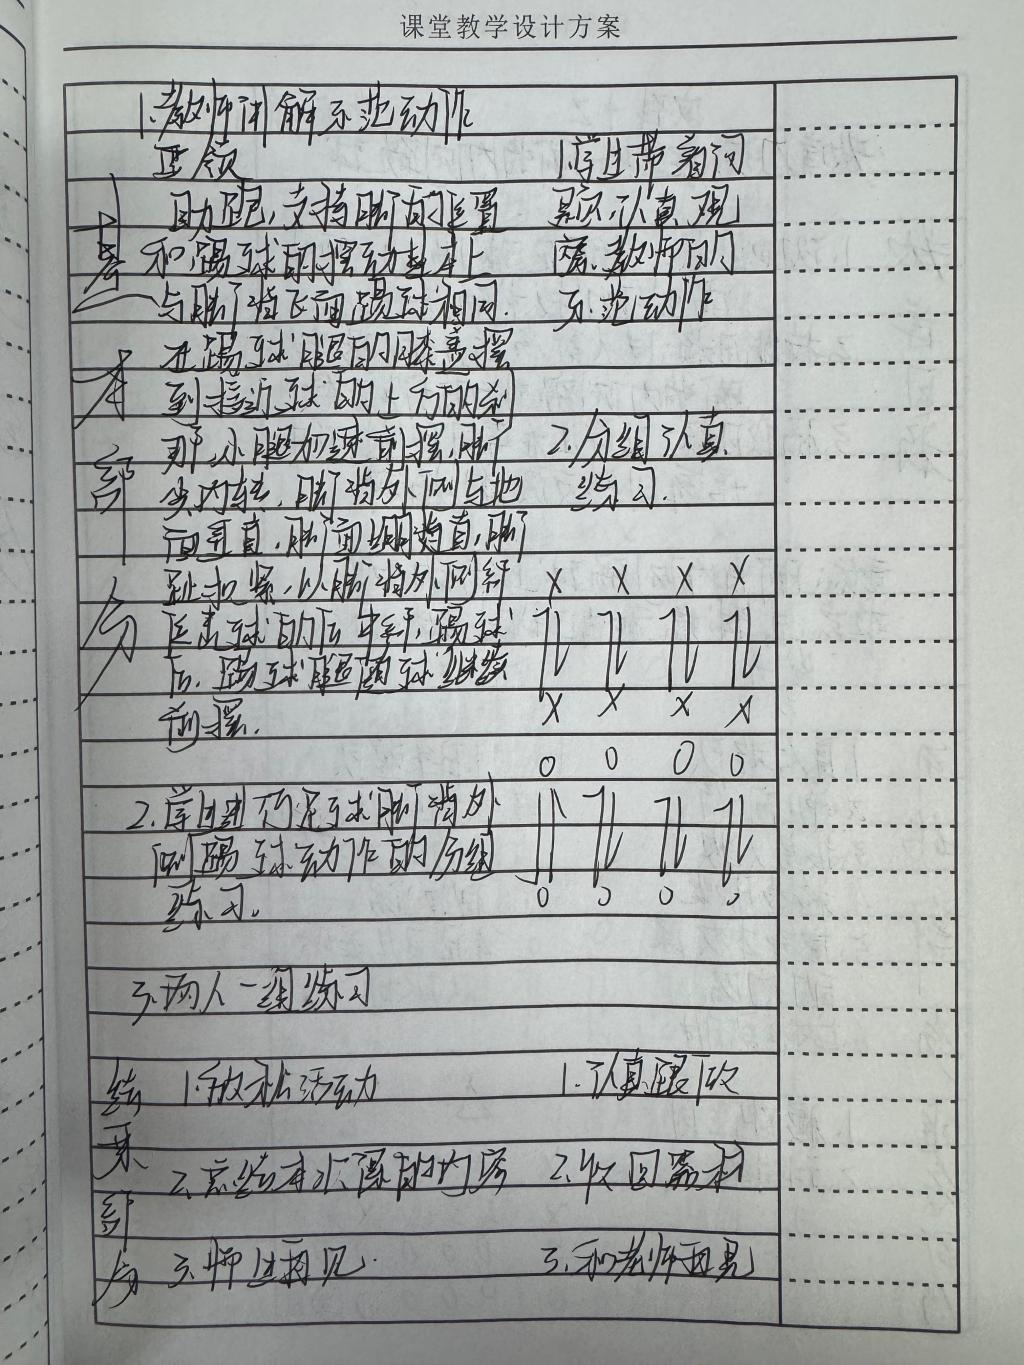 课堂教学设计方案
1.教师讲解示范动作
要领
1.学生带着问
助跑,支持脚的位置
题,认真观
和踢球的摆动基本上
察教师的
与脚背正面踢球相同.
示范动作
在踢球腿的膝盖摆
到接近球的上方的刹
那,小腿加速前摆,脚
2.分组认真
尖内转,脚背外侧与地
练习.
面垂直,脚面绷直,脚
趾扣紧,以脚背外侧部
X X X X
位击球的后中部,踢球
后,踢球腿随球继续
前摆.
X X X X
0 0 0 0
2.学生进行足球脚背外
侧踢球动作的分组
练习.
0 0 0 0
3.两人一组练习
基本部分
1.放松活动
1.认真跟做
2.总结本次课的内容
2.收回器材
3.师生再见.
3.和老师再见
结束部分